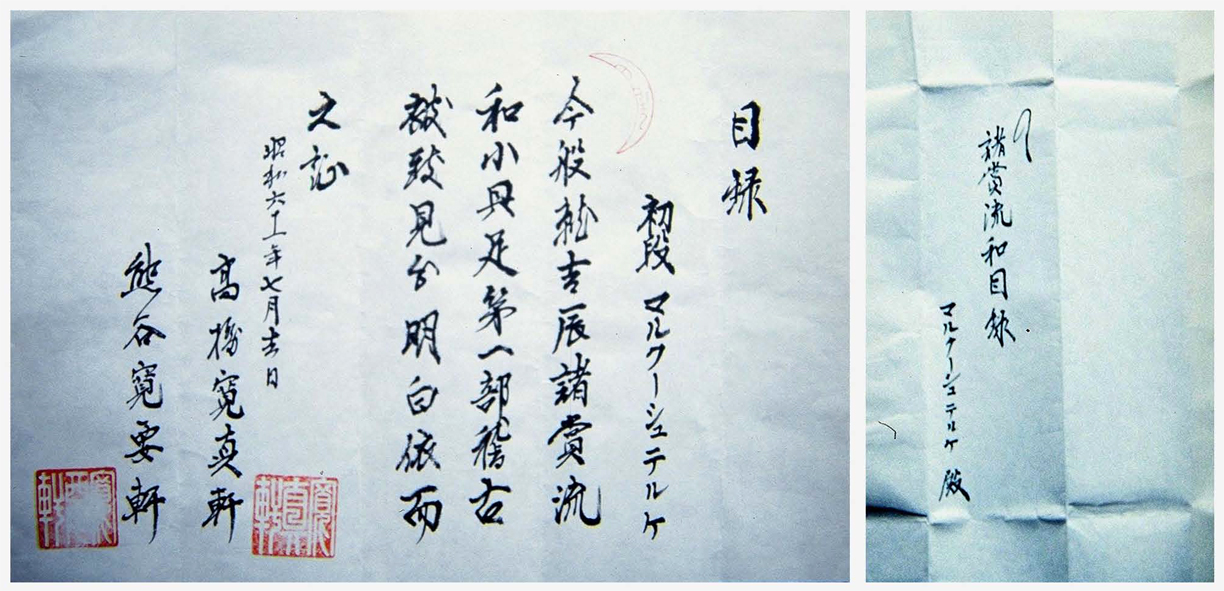 目録
初段 マルクーシュテルケ
今般就吉辰諸賞流
和小具足第一部稽古
被致見分明白依而
之証
昭和六十一年七月吉日
高橋寛真軒
寛真軒
熊谷寛要軒
諸賞流和目録
マルクーシュテルケ 殿